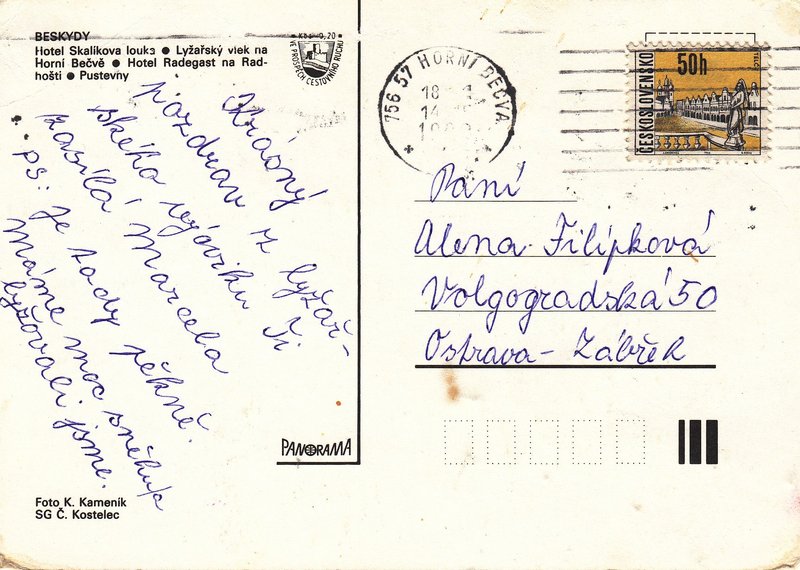 BESKYDY
Hotel Skalíkova louka ● Lyžařský vlek na
Horní Bečvě ● Hotel Radegast na Rad-
hošti ● Pustevny
Kčs 0,20
VE PROSPĚCH CESTOVNÍHO RUCHU
756 57 HORNÍ BEČVA
18
14
ČESKOSLOVENSKO
50h
Krásný
pozdrav z lyžař-
ského výcviku Ti
zasílá Marcela
PS: Je tady pěkně.
Máme moc sněhu a
lyžovali jsme.
Paní
Alena Filípková
Volgogradská 50
Ostrava - Zábřeh
PANORAMA
Foto K. Kameník
SG Č. Kostelec